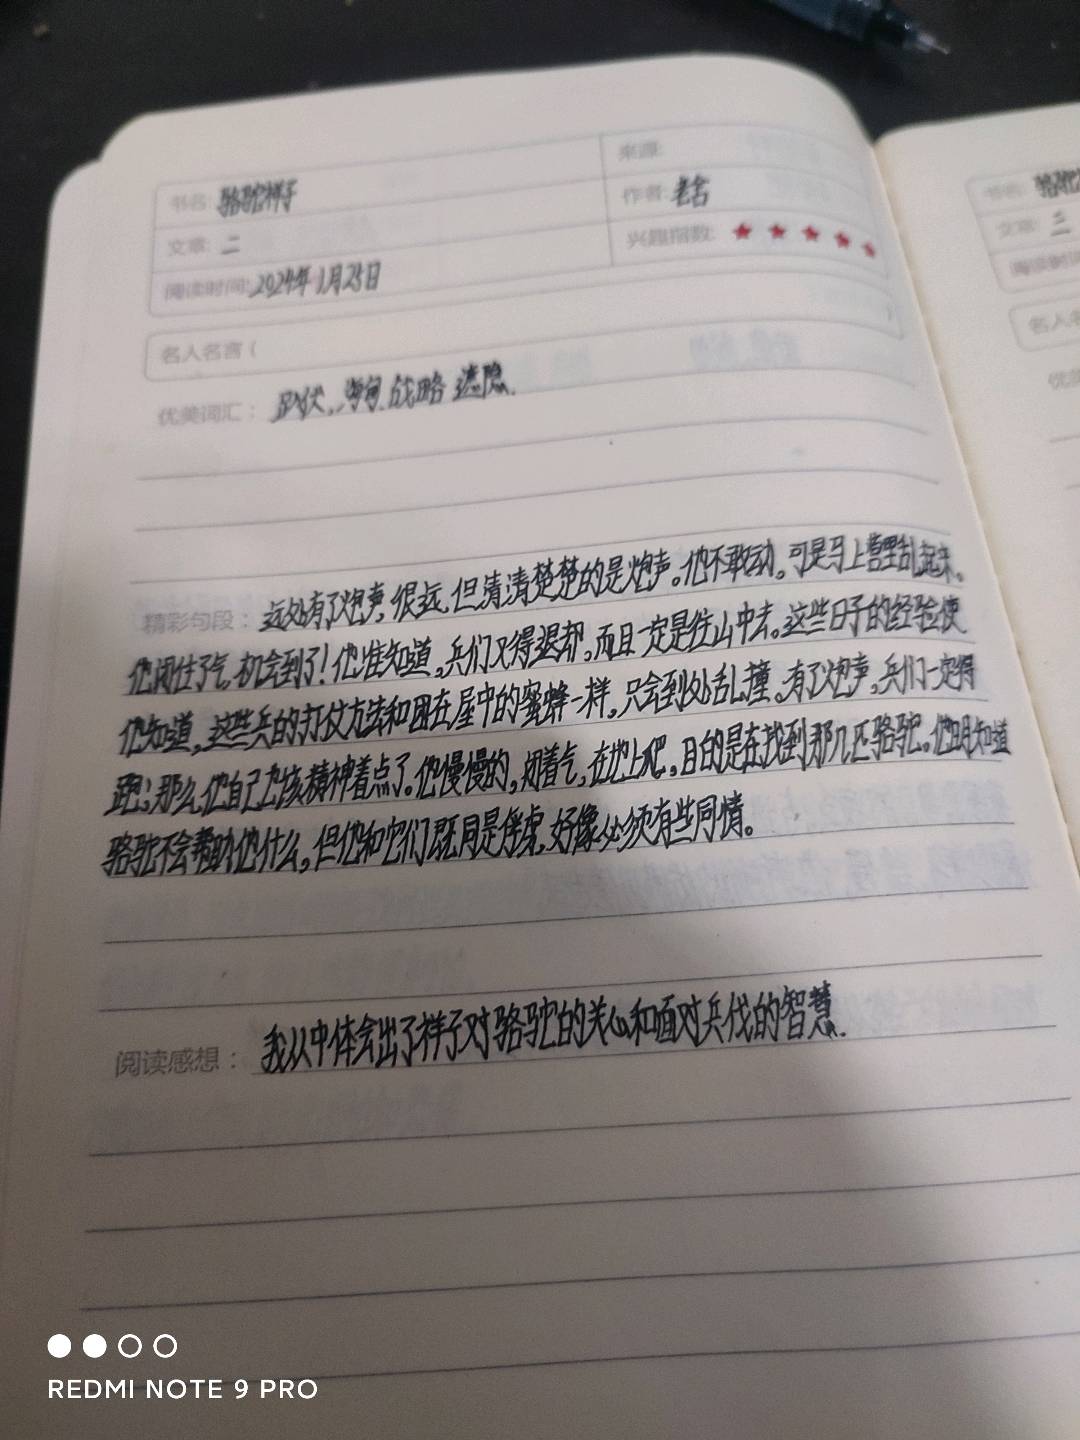 书名: 骆驼祥子
来源:
作者: 老舍
文章: 二
兴趣指数: ★★★★★
阅读时间: 2024年1月25日
名人名言（
优美词汇： 战略 遮隐.
精彩句段： 远处有了炮声,很远,但清清楚楚的是炮声。他不敢动。可是马上营里乱起来。
他闭住了气,机会到了!他准知道,兵们又得退却,而且一定是往山中去。这些日子的经验使
他知道,这些兵的打仗方法和困在屋中的蜜蜂一样,只会到处乱撞。有了炮声,兵们一定得
跑;那么,他自己也该精神着点了。他慢慢的,闭着气,在地上爬,目的是在找到那几匹骆驼。他明知道
骆驼不会帮助他什么,但他和它们既同是俘虏,好像必须有些同情。
阅读感想： 我从中体会出了祥子对骆驼的关心和面对兵伐的智慧.
书名: 骆驼
文章: 三
阅读时间
名人名
优美
REDMI NOTE 9 PRO